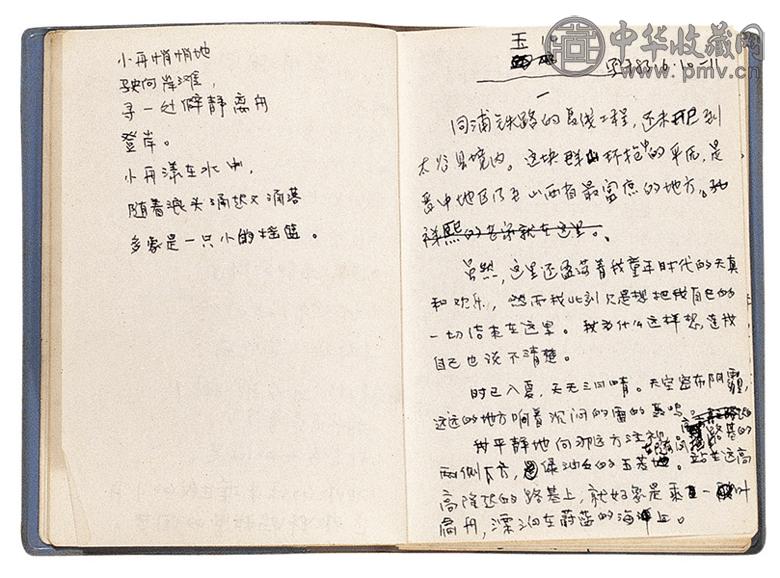 小舟悄悄地
驶向岸滩，
寻一处僻静离舟
登岸。
小舟漾在水中，
随着浪头涌起又涌落
多象是一只小的摇篮。
中华收藏网
www.pmv.cn
玉
一
同浦铁路的复线工程，还未 到
太谷县境内。这块群山环抱中的平原，是
晋中地区乃至山西省最富庶的地方。
祥熙的老家就在这里。
虽然，这里还孟 着我童年时代的天真
和欢乐，然而我此刻只是想把我自己的
一切结束在这里。我为什么这样想连我
自己也说不清楚。
时已入夏，天无三日晴。天空密布阴霾，
远远的地方响着沉闷的雷的轰鸣。
我平静地向那远方注视。 路基的
两侧下方，是绿油油的玉茭地。站在这高
高隆起的路基上，就好象是乘 一叶
扁舟，漂泊在蔚蓝的海洋上。